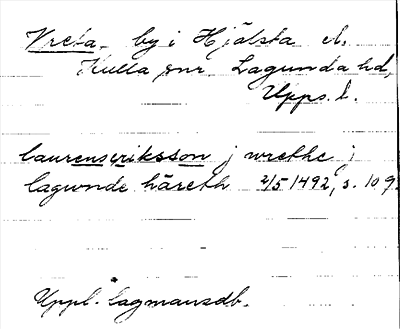 Vreta, by i Hjälsta el.
Kulla snr Lagunda hd,
Upps. l.
laurenseriksson j wrethe i
lagwnde häreth 2/5 1492, s. 109
Uppl. lagmansdb.